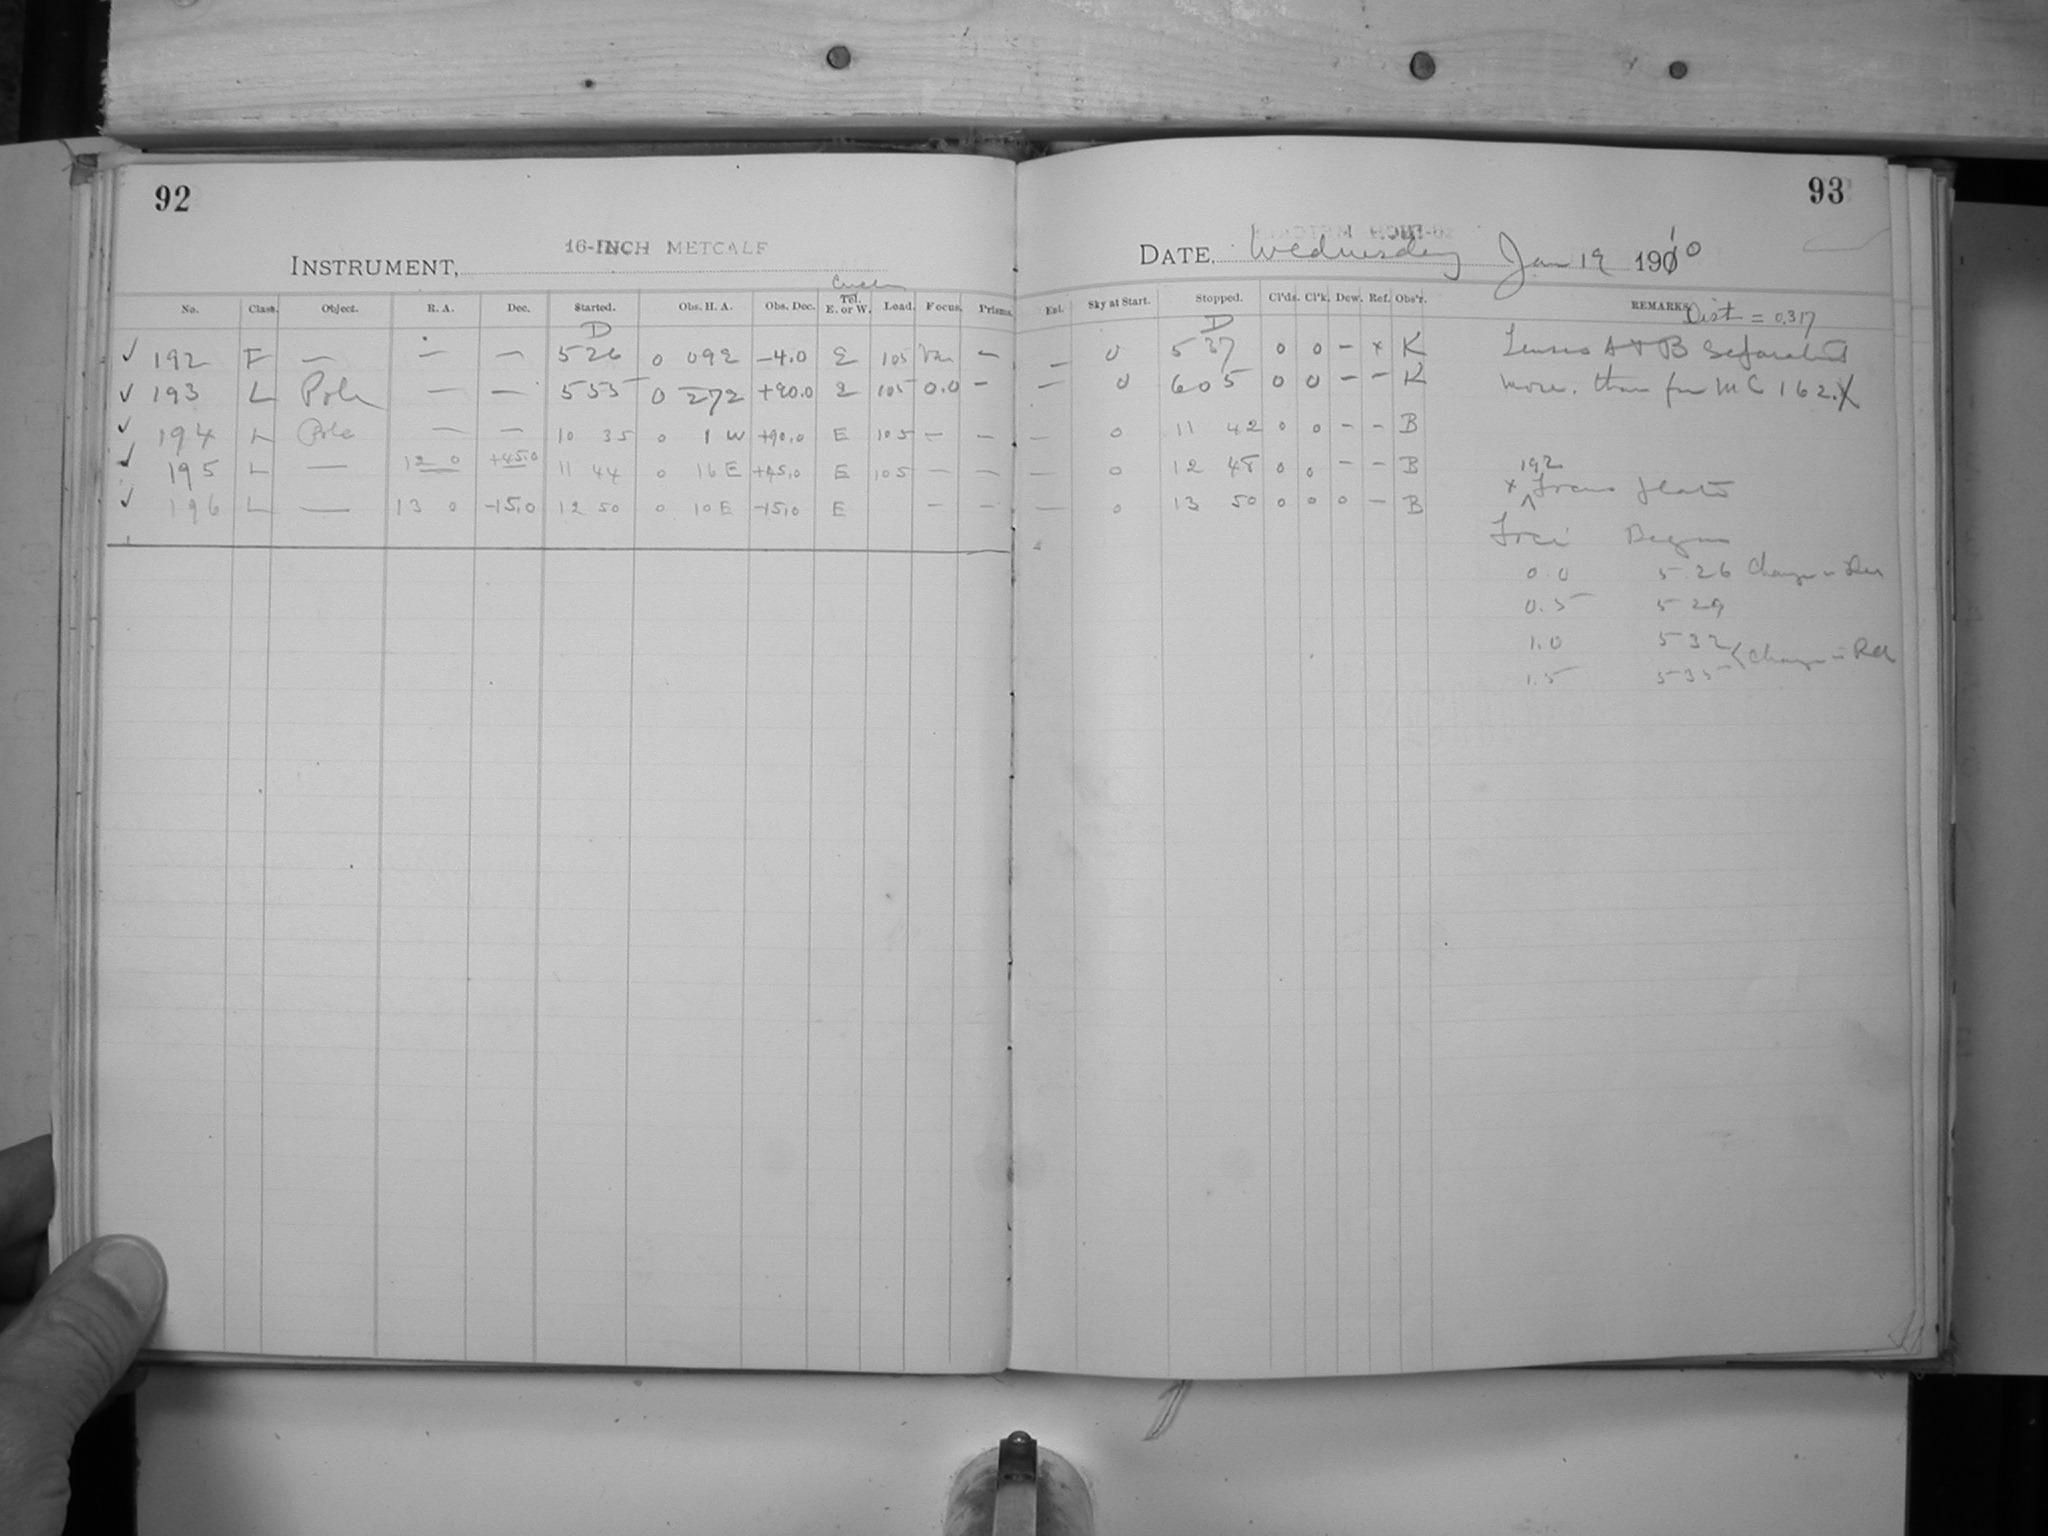 92
INSTRUMENT, 16-INCH METCALF
No. Class. Object. R. A. Dec. Started. Obs. H. A. Obs. Dec. Tel. E. or W. Load. Focus. Prisms.
D
✓ 192 F — — — 5 26 0 0 9 E -4.0 E 105 Var —
✓ 193 L Pole — — 5 55 0 2 72 +90.0 E 105 0.0 —
✓ 194 L Pole — — 10 35 0 1 W +90.0 E 105 — —
✓ 195 L — 12 0 +45.0 11 44 0 16 E +45.0 E 105 — —
✓ 196 L — 13 0 -15.0 12 50 0 10 E -15.0 E — —
93
DATE, Wednesday Jan 19 1910
Ext. Sky at Start. Stopped. Cl'ds. Cl'k. Dew. Ref. Obs'r. REMARKS.
Dist = 0.317
D
— 0 5 37 0 0 — x K Lenses A & B Separated
— 0 6 05 0 0 — — K more than for MC 162.
— 0 11 42 0 0 — — B
— 0 12 48 0 0 — — B
— 0 13 50 0 0 0 — B
192
x Focus plate
Foci Began
0.0 5 26 Change in Dec
0.5 5 29
1.0 5 32
Change in RA
1.5 5 35